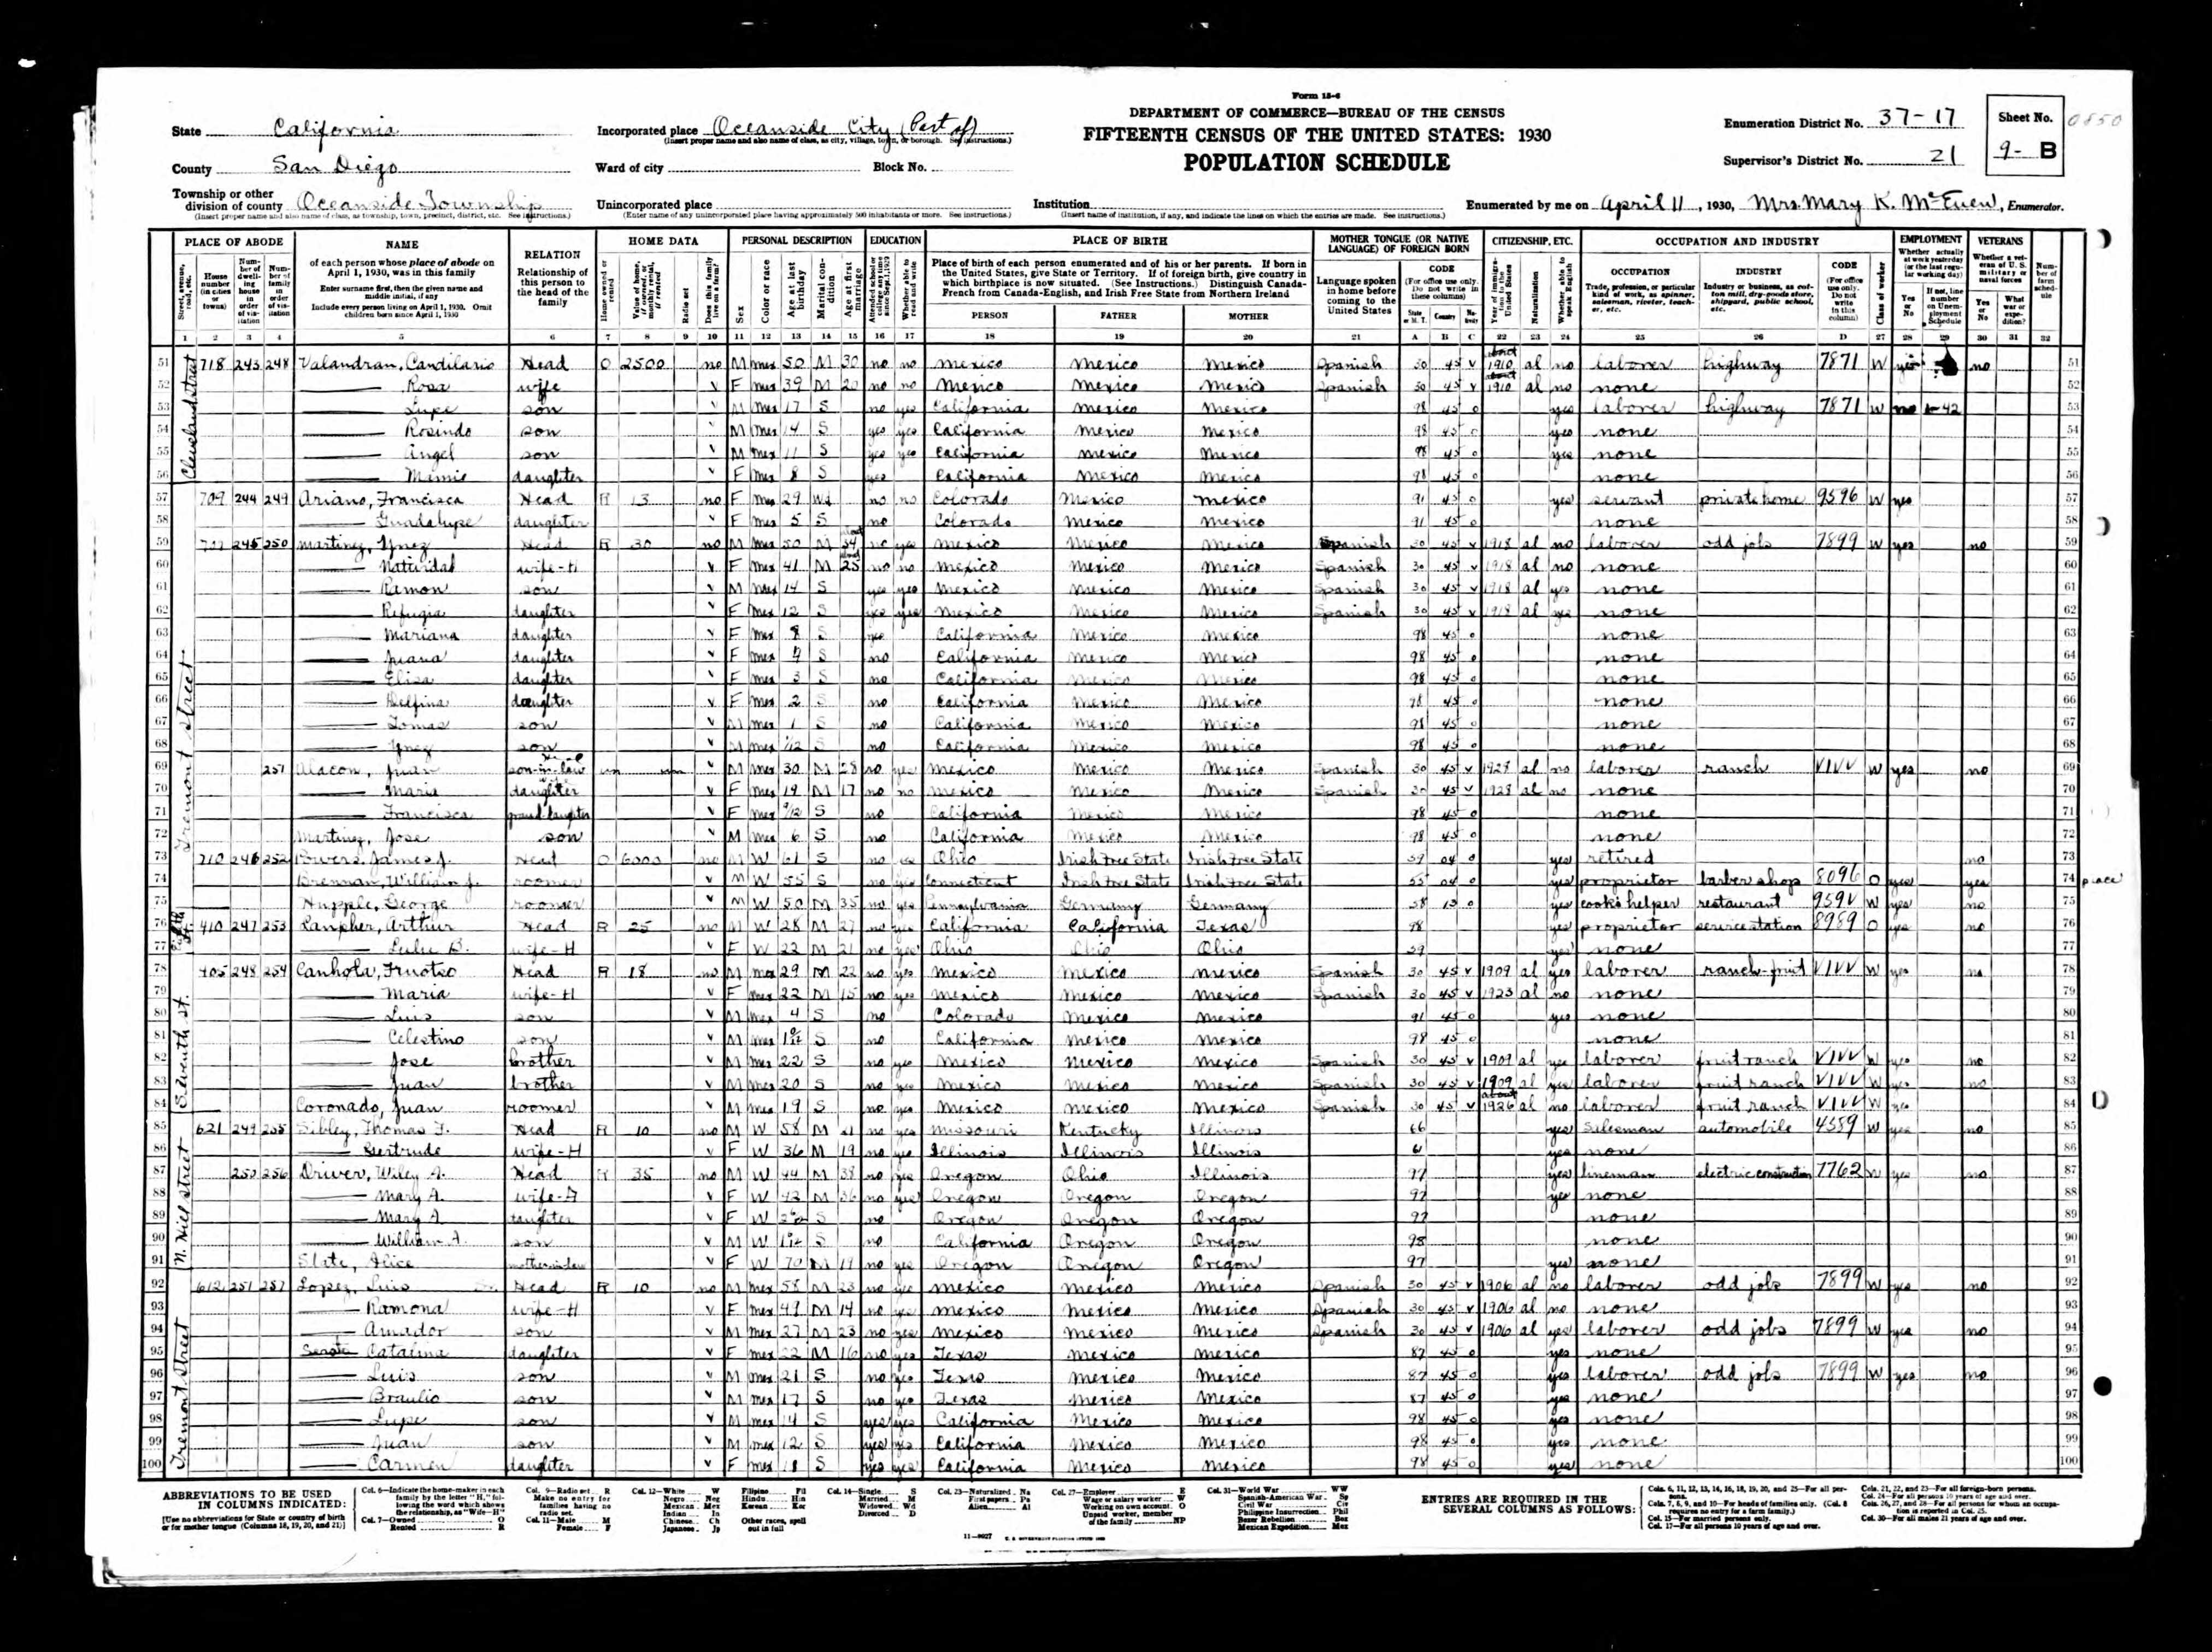 Form 15-6
DEPARTMENT OF COMMERCE—BUREAU OF THE CENSUS
FIFTEENTH CENSUS OF THE UNITED STATES: 1930
POPULATION SCHEDULE
State California
County San Diego
Township or other division of county Oceanside Township
(Insert proper name and also name of class, as township, town, precinct, district, etc. See instructions.)
Incorporated place Oceanside City (Part of)
(Insert proper name and also name of class, as city, village, town, or borough. See instructions.)
Ward of city Block No.
Unincorporated place
(Enter name of any unincorporated place having approximately 500 inhabitants or more. See instructions.)
Institution
(Insert name of institution, if any, and indicate the lines on which the entries are made. See instructions.)
Enumeration District No. 37-17
Supervisor's District No. 21
Sheet No. 9- B
0850
Enumerated by me on April 11, 1930, Mrs. Mary K. McEuen, Enumerator.
PLACE OF ABODE NAME RELATION HOME DATA PERSONAL DESCRIPTION EDUCATION PLACE OF BIRTH MOTHER TONGUE (OR NATIVE LANGUAGE) OF FOREIGN BORN CITIZENSHIP, ETC. OCCUPATION AND INDUSTRY EMPLOYMENT VETERANS
of each person whose place of abode on April 1, 1930, was in this family
Enter surname first, then the given name and middle initial, if any
Include every person living on April 1, 1930. Omit children born since April 1, 1930
Relationship of this person to the head of the family
Place of birth of each person enumerated and of his or her parents. If born in the United States, give State or Territory. If of foreign birth, give country in which birthplace is now situated. (See Instructions.) Distinguish Canada-French from Canada-English, and Irish Free State from Northern Ireland
PERSON FATHER MOTHER
Language spoken in home before coming to the United States
CODE
OCCUPATION INDUSTRY CODE
1 2 3 4 5 6 7 8 9 10 11 12 13 14 15 16 17 18 19 20 21 A B C 22 23 24 25 26 D 27 28 29 30 31 32
Cleveland Street
51 718 243 248 Valandran, Candilario Head O 2500 no M Mex 50 M 30 no no Mexico Mexico Mexico Spanish 30 45 V 1910 al no laborer highway 7871 W yes no 51
52 Rosa wife V F Mex 39 M 20 no no Mexico Mexico Mexico Spanish 30 45 V 1910 al no none 52
53 Lupe son V M Mex 17 S no yes California Mexico Mexico 98 45 0 yes laborer highway 7871 W no 42 53
54 Rosindo son V M Mex 14 S yes yes California Mexico Mexico 98 45 0 yes none 54
55 Angel son V M Mex 11 S yes yes California Mexico Mexico 98 45 0 yes none 55
56 Mamie daughter V F Mex 8 S yes California Mexico Mexico 98 45 0 none 56
57 709 244 249 Ariano, Francisca Head R 13 no F Mex 29 Wd no no Colorado Mexico Mexico 91 45 0 yes servant private home 9596 W yes 57
58 Guadalupe daughter V F Mex 5 S no Colorado Mexico Mexico 91 45 0 none 58
Tremont Street
59 245 250 Martinez, Ynez Head R 30 no M Mex 50 M 34 no yes Mexico Mexico Mexico Spanish 30 45 V 1918 al no laborer odd jobs 7899 W yes no 59
60 Natividad wife-H V F Mex 41 M 25 no no Mexico Mexico Mexico Spanish 30 45 V 1918 al no none 60
61 Ramon son V M Mex 14 S yes yes Mexico Mexico Mexico Spanish 30 45 V 1918 al yes none 61
62 Refugia daughter V F Mex 12 S yes yes Mexico Mexico Mexico Spanish 30 45 V 1918 al yes none 62
63 Mariana daughter V F Mex 8 S yes California Mexico Mexico 98 45 0 none 63
64 Juana daughter V F Mex S no California Mexico Mexico 98 45 0 none 64
65 Elisa daughter V F Mex 3 S no California Mexico Mexico 98 45 0 none 65
66 Delfina daughter V F Mex 2 S no California Mexico Mexico 98 45 0 none 66
67 Tomas son V M Mex 1 S no California Mexico Mexico 98 45 0 none 67
68 Ynez son V M Mex 1/12 S no California Mexico Mexico 98 45 0 none 68
69 251 Alacon, Juan son-in-law V M Mex 30 M 28 no yes Mexico Mexico Mexico Spanish 30 45 V al no laborer ranch VIVV W yes no 69
70 Maria daughter V F Mex 19 M 17 no no Mexico Mexico Mexico Spanish 30 45 V 1928 al no none 70
71 Francisca grand daughter V F Mex 9/12 S no California Mexico Mexico 98 45 0 none 71
72 Martinez, Jose son V M Mex 6 S no California Mexico Mexico 98 45 0 none 72
73 710 246 252 Powers, James J. Head O 6000 no M W 61 S no yes Ohio Irish Free State Irish Free State 59 04 0 yes retired no 73
74 Brennan, William J. roomer V M W 55 S no yes Connecticut Irish Free State Irish Free State 55 04 0 yes proprietor barber shop 8096 O yes yes 74 place
75 Hupple, George roomer V M W 50 M 35 no yes Pennsylvania Germany Germany 58 13 0 yes cook's helper restaurant 959V W yes no 75
76 410 247 253 Lanpher, Arthur Head R 25 no M W 28 M 27 no yes California California Texas 98 yes proprietor service station 8989 O yes no 76
77 Lulu B. wife-H V F W 22 M 21 no yes Ohio Ohio Ohio 59 yes none 77
Seventh St.
78 405 248 254 Canhola, Fructso Head R 18 no M Mex 29 M 22 no yes Mexico Mexico Mexico Spanish 30 45 V 1909 al yes laborer ranch-fruit VIVV W yes no 78
79 Maria wife-H V F Mex 22 M 15 no yes Mexico Mexico Mexico Spanish 30 45 V 1923 al no none 79
80 Luis son V M Mex 4 S no Colorado Mexico Mexico 91 45 0 yes none 80
81 Celestino son V M Mex S no California Mexico Mexico 98 45 0 none 81
82 Jose brother V M Mex 22 S no yes Mexico Mexico Mexico Spanish 30 45 V 1909 al yes laborer fruit ranch VIVV W yes no 82
83 Juan brother V M Mex 20 S no yes Mexico Mexico Mexico Spanish 30 45 V 1909 al yes laborer fruit ranch VIVV W yes no 83
84 Coronado, Juan roomer V M Mex 19 S no yes Mexico Mexico Mexico Spanish 30 45 V about 1926 al no laborer fruit ranch VIVV W yes 84
N. Hill Street
85 621 249 255 Sibley, Thomas F. Head R 10 no M W 58 M 21 no yes Missouri Kentucky Illinois 66 yes salesman automobile 4589 W yes no 85
86 Gertrude wife-H V F W 36 M 19 no yes Illinois Illinois Illinois 61 yes none 86
87 250 256 Driver, Wiley A. Head R 35 no M W 44 M 38 no yes Oregon Ohio Illinois 97 yes lineman electric construction 7762 W yes no 87
88 Mary A. wife-H V F W 42 M 36 no yes Oregon Oregon Oregon 97 yes none 88
89 Mary A. daughter V F W S no Oregon Oregon Oregon 97 none 89
90 William A. son V M W S no California Oregon Oregon 98 none 90
91 Slate, Alice mother in law V F W 70 M 19 no yes Oregon Oregon Oregon 97 yes none 91
Tremont Street
92 612 251 257 Lopez, Luis Head R 10 no M Mex 58 M 23 no yes Mexico Mexico Mexico Spanish 30 45 V 1906 al no laborer odd jobs 7899 W yes no 92
93 Ramona wife-H V F Mex 49 M 14 no yes Mexico Mexico Mexico Spanish 30 45 V 1906 al no none 93
94 Amador son V M Mex 27 M 23 no yes Mexico Mexico Mexico Spanish 30 45 V 1906 al yes laborer odd jobs 7899 W yes no 94
95 Catarina daughter V F Mex 22 M 16 no yes Texas Mexico Mexico 87 45 0 yes none 95
96 Luis son V M Mex 21 S no yes Texas Mexico Mexico 87 45 0 yes laborer odd jobs 7899 W yes no 96
97 Braulio son V M Mex 17 S no yes Texas Mexico Mexico 87 45 0 yes none 97
98 Lupe son V M Mex 14 S yes yes California Mexico Mexico 98 45 0 yes none 98
99 Juan son V M Mex 12 S yes yes California Mexico Mexico 98 45 0 yes none 99
100 Carmen daughter V F Mex 11 S yes yes California Mexico Mexico 98 45 0 yes none 100
ABBREVIATIONS TO BE USED IN COLUMNS INDICATED:
[Use no abbreviations for State or country of birth or for mother tongue (Columns 18, 19, 20, and 21)]
ENTRIES ARE REQUIRED IN THE SEVERAL COLUMNS AS FOLLOWS: